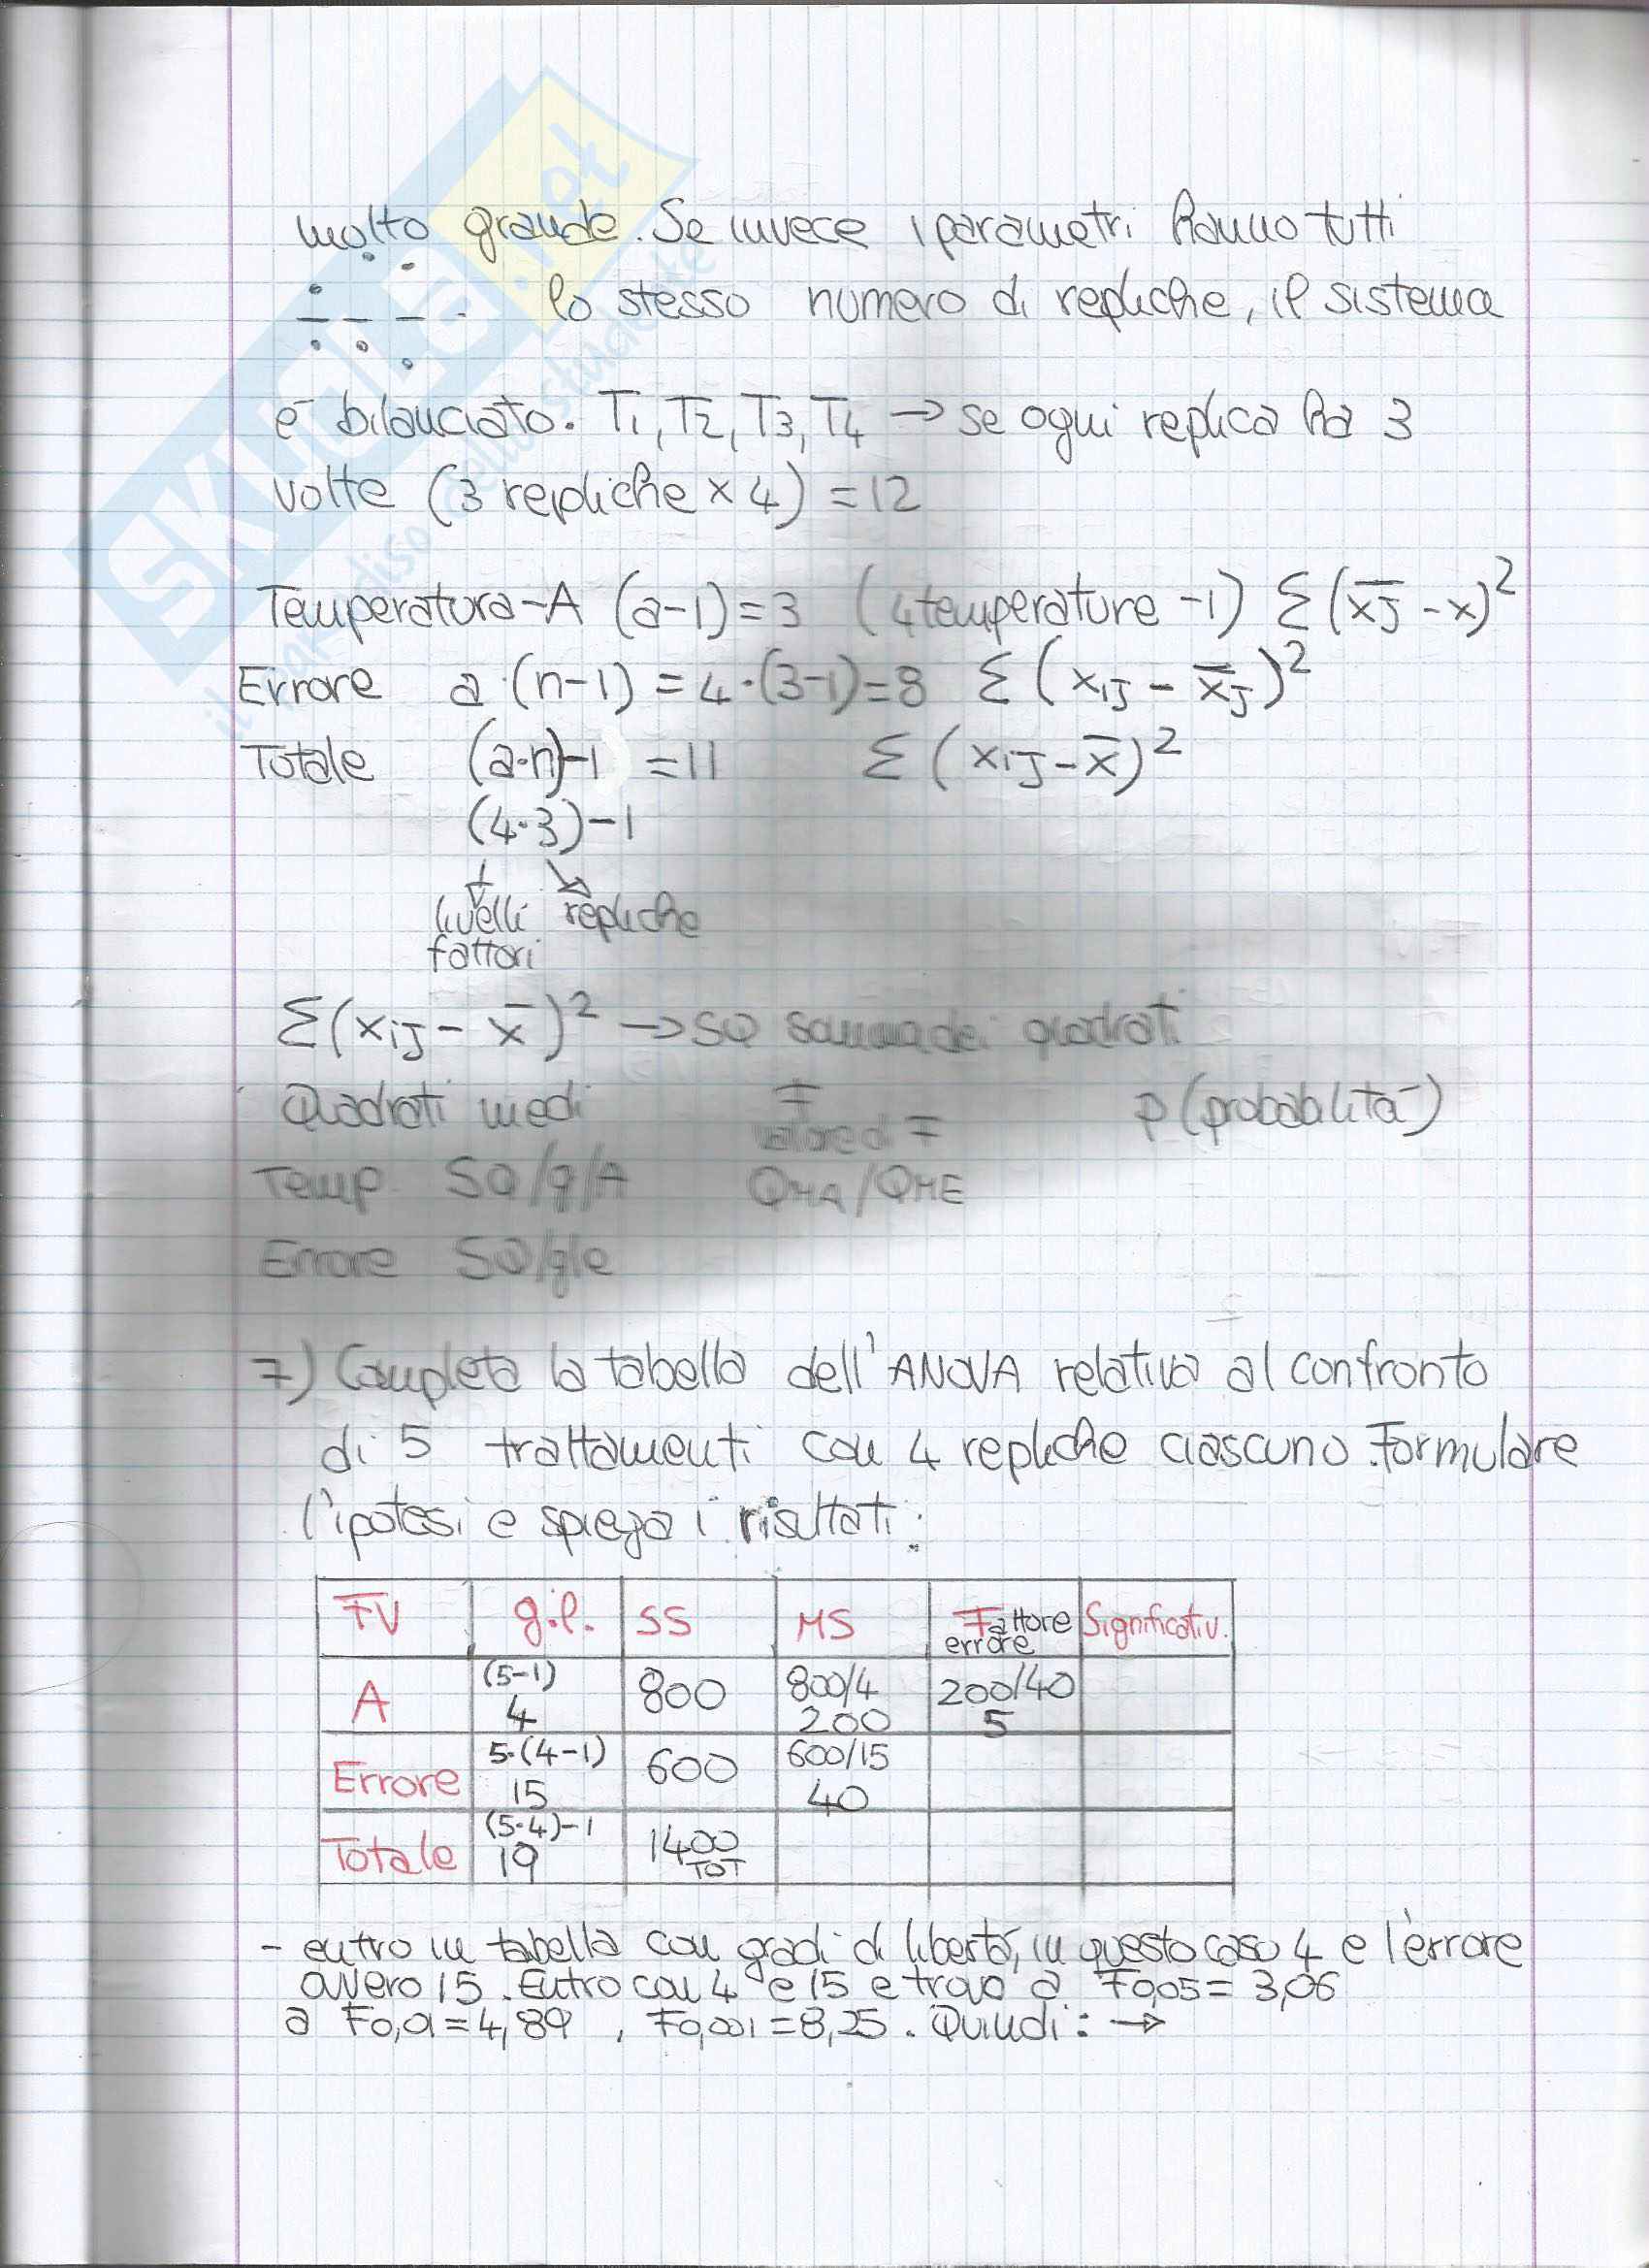 SKUOLA.net
il paradiso dello studente
molto grande. Se invece i parametri hanno tutti
lo stesso numero di repliche, il sistema
è bilanciato. T1, T2, T3, T4 → se ogni replica ha 3
volte (3 repliche x 4) = 12
Temperatura-A (a-1) = 3 (4 temperature -1) Σ(x̄j - x)²
Errore a·(n-1) = 4·(3-1) = 8 Σ(xij - x̄j)²
Totale (a·n)-1 = 11 Σ(xij - x̄)²
(4·3)-1
livelli repliche
fattori
Σ(xij - x̄)² → SQ somma dei quadrati
Quadrati medi F p (probabilità)
F
Temp. SQ/g/A QMA/QME
Errore SQ/gle
7) Completa la tabella dell'ANOVA relativa al confronto
di 5 trattamenti con 4 repliche ciascuno. Formulare
l'ipotesi e spiega i risultati:
FV g.l. SS MS Fattore errore Significativ.
A (5-1) 4 800 800/4 200 200/40 5
Errore 5·(4-1) 15 600 600/15 40
Totale (5·4)-1 19 1400 TOT
- entro in tabella con gradi di libertà, in questo caso 4 e l'errore
ovvero 15. Entro con 4 e 15 e trovo a F0,05 = 3,06
a F0,01 = 4,89 , F0,001 = 8,25. Quindi: →